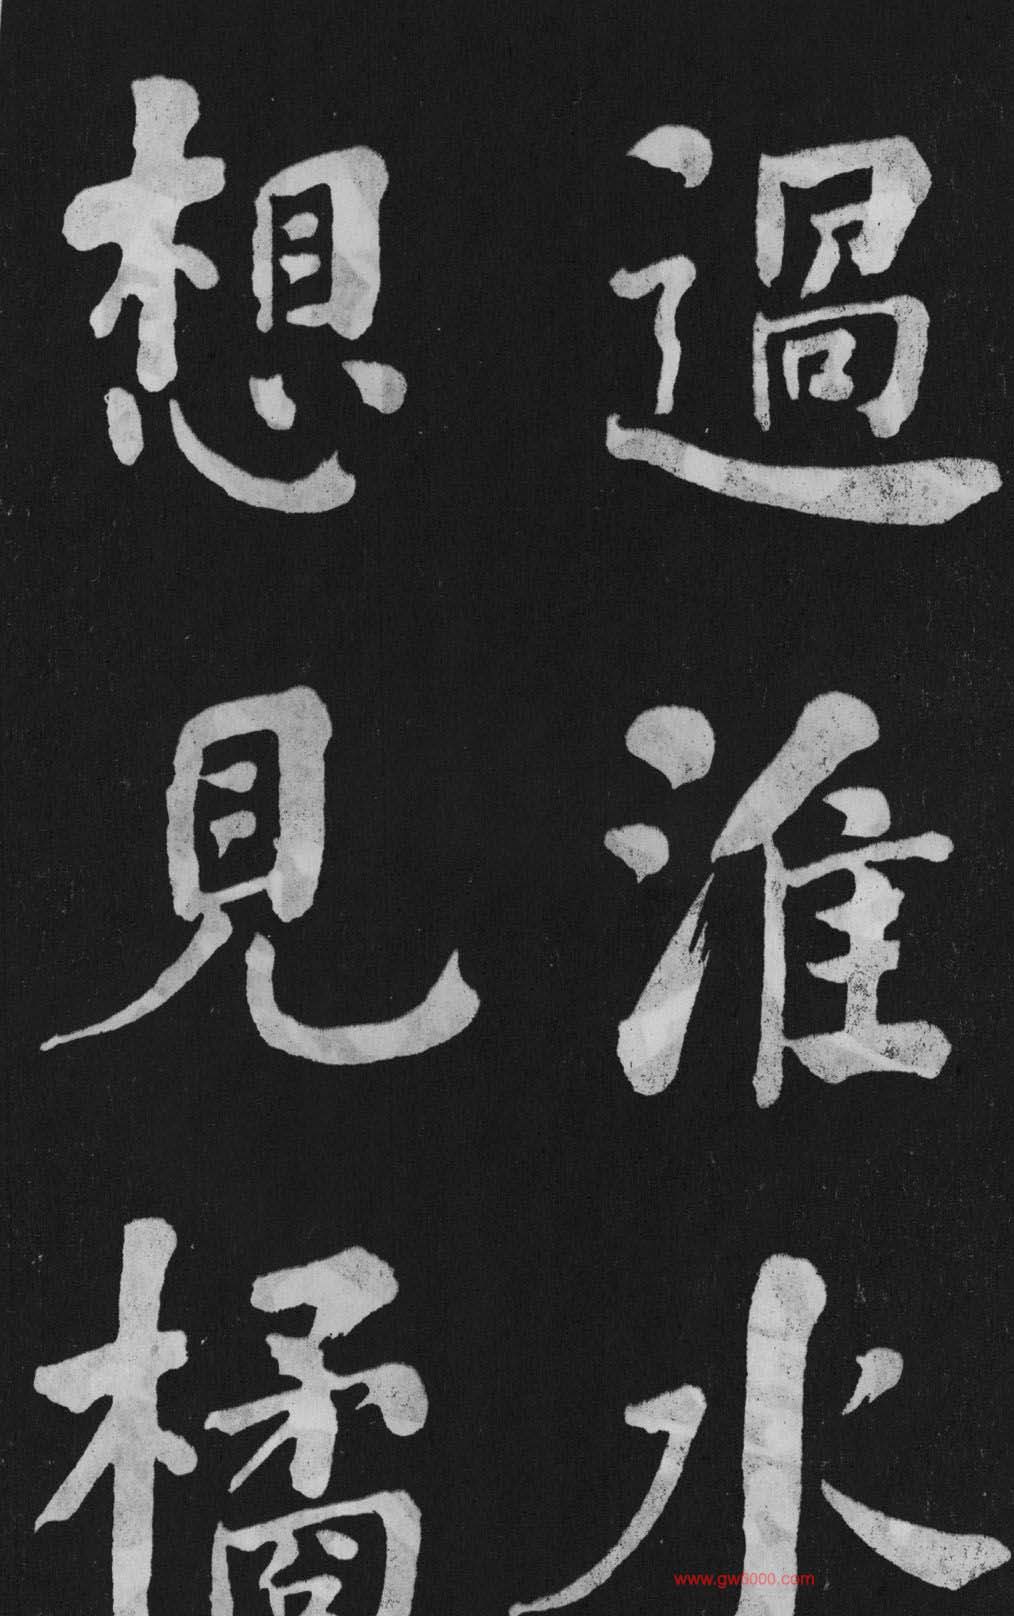 過淮水
想見橘
www.gw5000.com